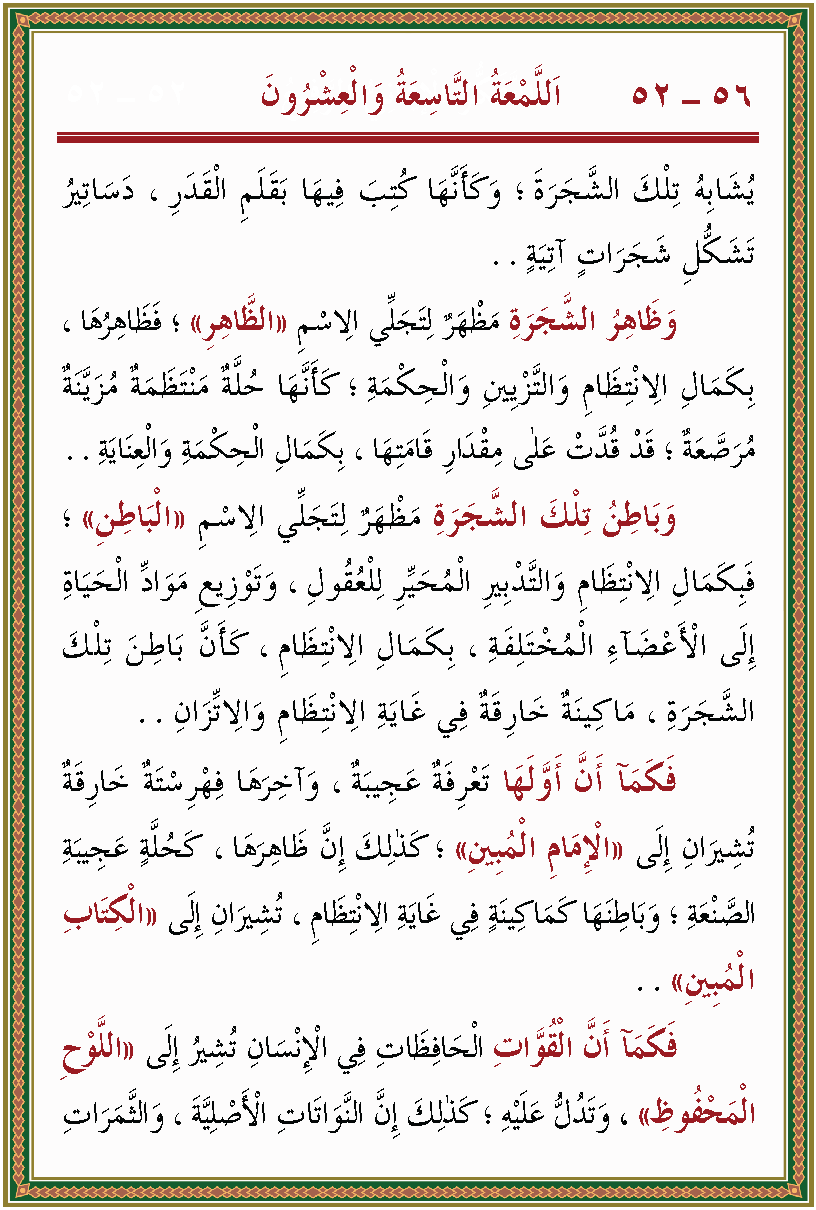 ٥٦ ـ ٥٢ اَللَّمْعَةُ التَّاسِعَةُ وَالْعِشْرُونَ
يُشَابِهُ تِلْكَ الشَّجَرَةَ ؛ وَكَأَنَّهَا كُتِبَ فِيهَا بِقَلَمِ الْقَدَرِ ، دَسَاتِيرُ
تَشَكُّلِ شَجَرَاتٍ آتِيَةٍ . .
وَظَاهِرُ الشَّجَرَةِ مَظْهَرٌ لِتَجَلِّي الِاسْمِ «الظَّاهِرِ» ؛ فَظَاهِرُهَا ،
بِكَمَالِ الِانْتِظَامِ وَالتَّزْيِينِ وَالْحِكْمَةِ ؛ كَأَنَّهَا حُلَّةٌ مُنْتَظَمَةٌ مُزَيَّنَةٌ
مُرَصَّعَةٌ ؛ قَدْ قُدَّتْ عَلٰى مِقْدَارِ قَامَتِهَا ، بِكَمَالِ الْحِكْمَةِ وَالْعِنَايَةِ . .
وَبَاطِنُ تِلْكَ الشَّجَرَةِ مَظْهَرٌ لِتَجَلِّي الِاسْمِ «الْبَاطِنِ» ؛
فَبِكَمَالِ الِانْتِظَامِ وَالتَّدْبِيرِ الْمُحَيِّرِ لِلْعُقُولِ ، وَتَوْزِيعِ مَوَادِّ الْحَيَاةِ
إِلَى الْأَعْضَآءِ الْمُخْتَلِفَةِ ، بِكَمَالِ الِانْتِظَامِ ، كَأَنَّ بَاطِنَ تِلْكَ
الشَّجَرَةِ ، مَاكِينَةٌ خَارِقَةٌ فِي غَايَةِ الِانْتِظَامِ وَالِاتِّزَانِ . .
فَكَمَآ أَنَّ أَوَّلَهَا تَعْرِفَةٌ عَجِيبَةٌ ، وَآخِرَهَا فِهْرِسْتَةٌ خَارِقَةٌ
تُشِيرَانِ إِلَى «الْإِمَامِ الْمُبِينِ» ؛ كَذٰلِكَ إِنَّ ظَاهِرَهَا ، كَحُلَّةٍ عَجِيبَةِ
الصَّنْعَةِ ؛ وَبَاطِنَهَا كَمَاكِينَةٍ فِي غَايَةِ الِانْتِظَامِ ، تُشِيرَانِ إِلَى «الْكِتَابِ
الْمُبِينِ» . .
فَكَمَآ أَنَّ الْقُوَّاتِ الْحَافِظَاتِ فِي الْإِنْسَانِ تُشِيرُ إِلَى «اللَّوْحِ
الْمَحْفُوظِ» ، وَتَدُلُّ عَلَيْهِ ؛ كَذٰلِكَ إِنَّ النَّوَاتَاتِ الْأَصْلِيَّةَ ، وَالثَّمَرَاتِ